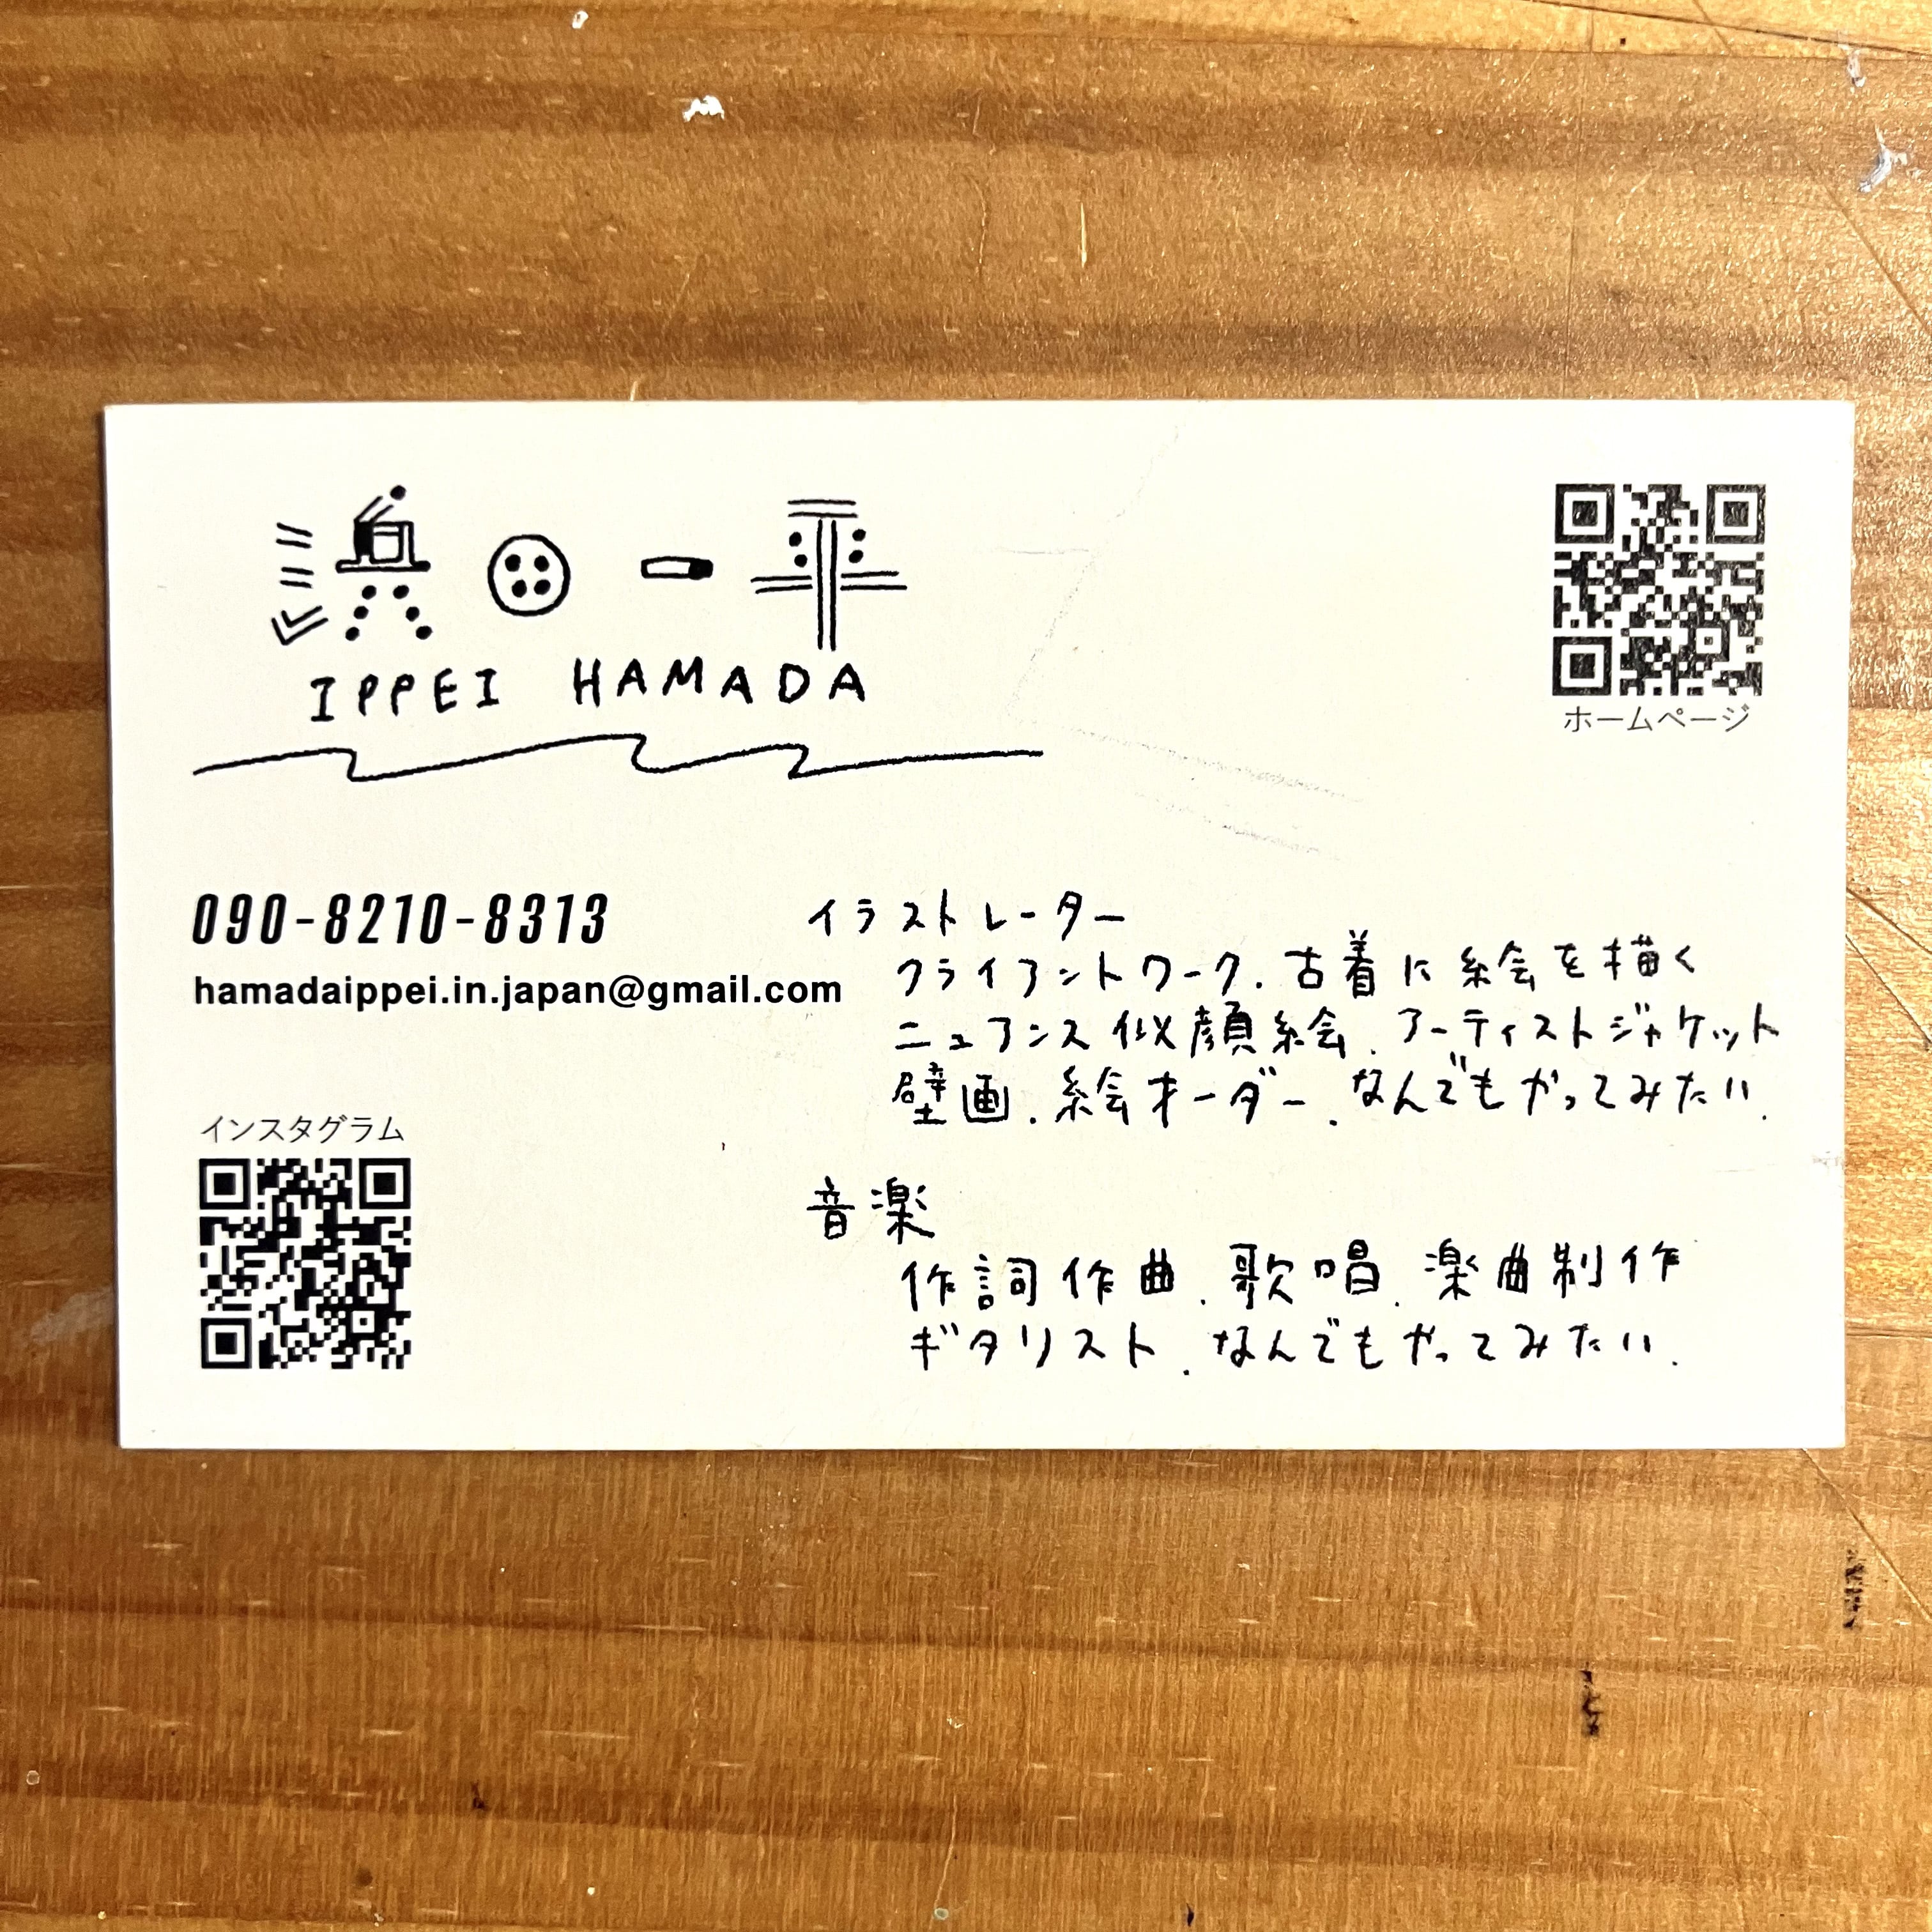 濵田一平
IPPEI HAMADA
ホームページ
090-8210-8313
hamadaippei.in.japan@gmail.com
イラストレーター
クライアントワーク. 古着に絵を描く
ニュアンス似顔絵. アーティストジャケット
壁画. 絵オーダー. なんでもやってみたい.
インスタグラム
音楽
作詞作曲. 歌唱. 楽曲制作
ギタリスト. なんでもやってみたい.